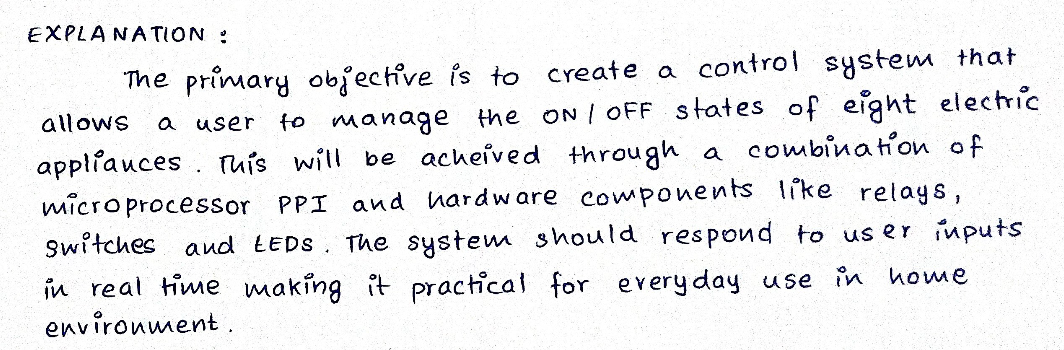 EXPLANATION :
The primary objective is to create a control system that
allows a user to manage the ON / OFF states of eight electric
appliances. This will be acheived through a combination of
microprocessor PPI and hardware components like relays,
switches and LEDs. The system should respond to user inputs
in real time making it practical for everyday use in home
environment.